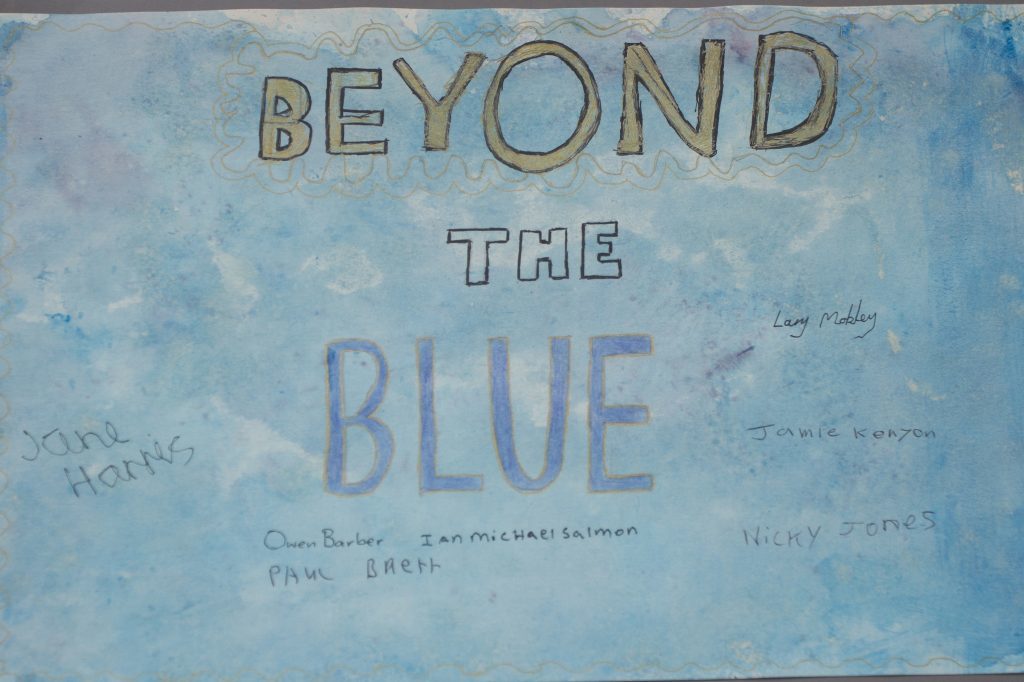 BEYOND
THE
BLUE
Jamie Kenyon
Jane
Harries
Owen Barber Ian Michael Salmon
Nicky Jones
Paul Brett